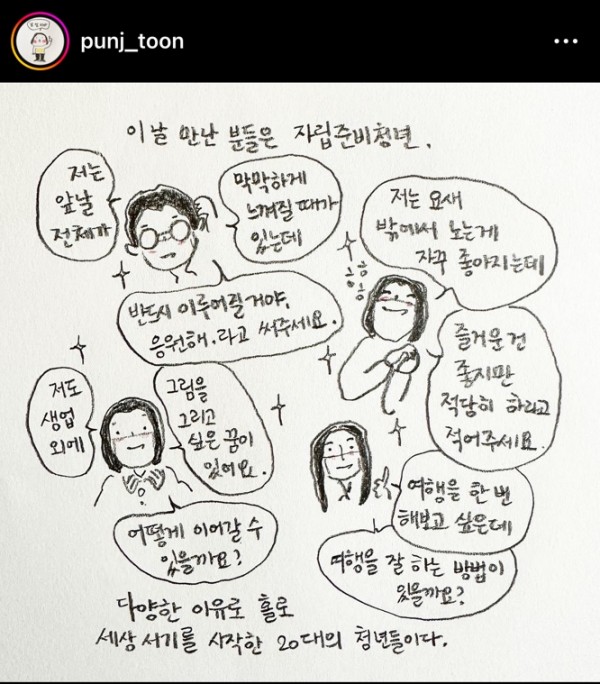 punj_toon
이날 만난 분들은 자립준비청년.
저는
앞날
전체가
막막하게
느껴질 때가
있는데
반드시 이루어질거야.
응원해.라고 써주세요.
저는 요새
밖에서 노는게
자꾸 좋아지는데
흐흐
흐흐
즐거운 건
좋지만
적당히 하라고
적어주세요.
저도
생업
외에
그림을
그리고
싶은 꿈이
있어요.
어떻게 이어갈 수
있을까요?
여행을 한 번
해보고 싶은데
여행을 잘 하는 방법이
있을까요?
다양한 이유로 홀로
세상 서기를 시작한 20대의 청년들이다.